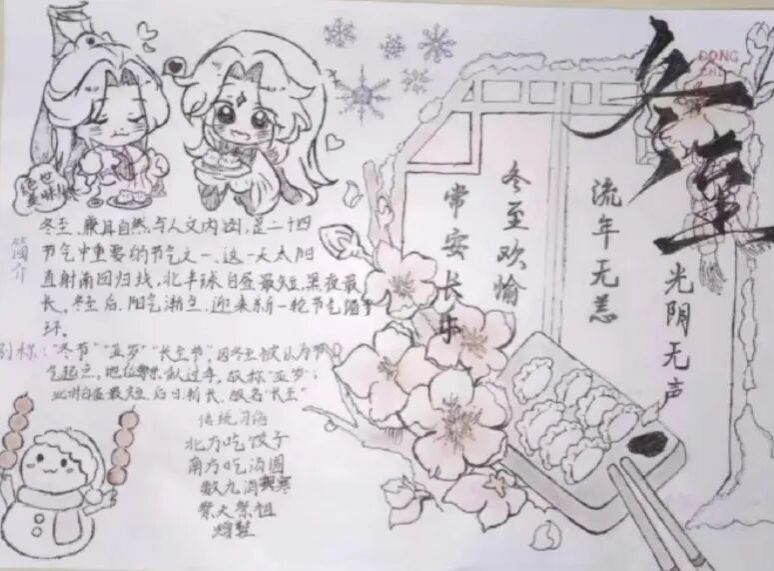 DONG
ZHI
冬至
光阴无声
流年无恙
冬至欢愉
常安长乐
绝世美味!!
简介
冬至，兼具自然与人文内涵，是二十四
节气中重要的节气之一、这一天太阳
直射南回归线，北半球白昼最短，黑夜最
长。冬至后，阳气渐生，迎来新一轮节气循
环。
别称："冬节""亚岁""长至节"，因冬至被认为节
气起点，地位 似过年，故称"亚岁"；
此时白昼最短，后日渐长，故名"长至"
传统习俗
北方吃饺子
南方吃汤圆
数九消寒
祭天祭祖